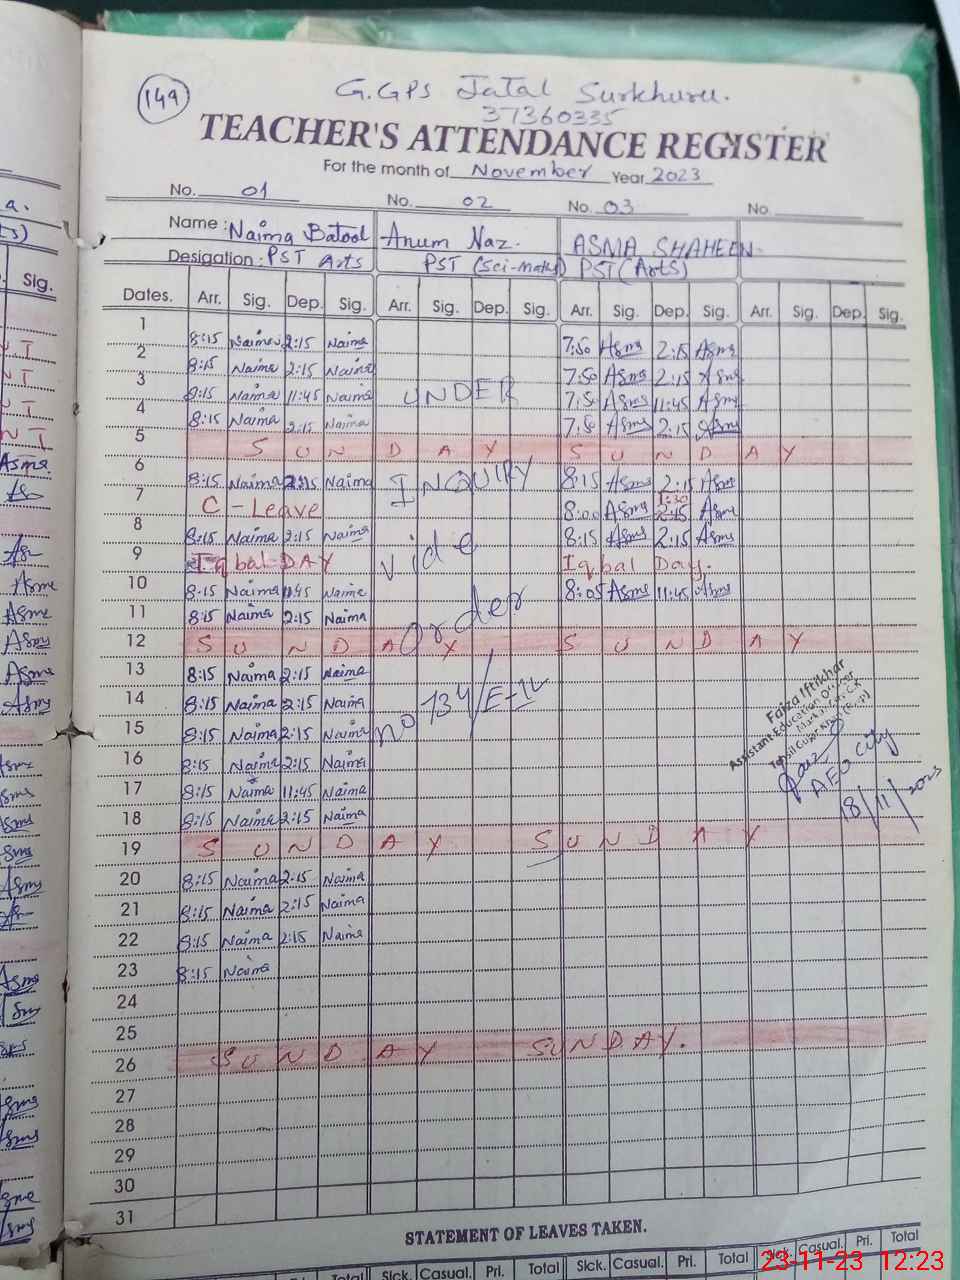 149
G.GPS Jatal Surkhuru.
37360335
TEACHER'S ATTENDANCE REGISTER
For the month of November Year 2023
No. 01 No. 02 No. 03 No.
Name: Naima Batool Anum Naz. ASMA SHAHEEN.
Desigation: PST Arts PST (Sci-Math) PST (Arts)
Dates. Arr. Sig. Dep. Sig. Arr. Sig. Dep. Sig. Arr. Sig. Dep. Sig. Arr. Sig. Dep. Sig.
1 8:15 Naima 2:15 Naima 7:50 Asma 2:15 Asma
2 8:15 Naima 2:15 Naima 7:50 Asma 2:15 Asma
3 8:15 Naima 11:45 Naima UNDER 7:50 Asma 11:45 Asma
4 8:15 Naima 2:15 Naima 7:50 Asma 2:15 Asma
5 SUNDAY SUNDAY
6 8:15 Naima 2:15 Naima INQUIRY 8:15 Asma 2:15 Asma
7 C-Leave 8:00 Asma 1:30 2:15 Asma
8 8:15 Naima 2:15 Naima vide 8:15 Asma 2:15 Asma
9 Iqbal DAY Iqbal Day.
10 8:15 Naima 11:45 Naima Order 8:05 Asma 11:45 Asma
11 8:15 Naima 2:15 Naima
12 SUNDAY SUNDAY
13 8:15 Naima 2:15 Naima
14 8:15 Naima 2:15 Naima no 734/E-II
15 8:15 Naima 2:15 Naima
16 8:15 Naima 2:15 Naima
17 8:15 Naima 11:45 Naima
18 8:15 Naima 2:15 Naima
Faiza Iftikhar
Assistant Education Officer
AEO City
18/11/2023
19 SUNDAY SUNDAY
20 8:15 Naima 2:15 Naima
21 8:15 Naima 2:15 Naima
22 8:15 Naima 2:15 Naima
23 8:15 Naima
24
25
26 SUNDAY SUNDAY.
27
28
29
30
31
STATEMENT OF LEAVES TAKEN.
Total Sick. Casual. Pri. Total Sick. Casual. Pri. Total Sick. Casual. Pri. Total
23-11-23 12:23